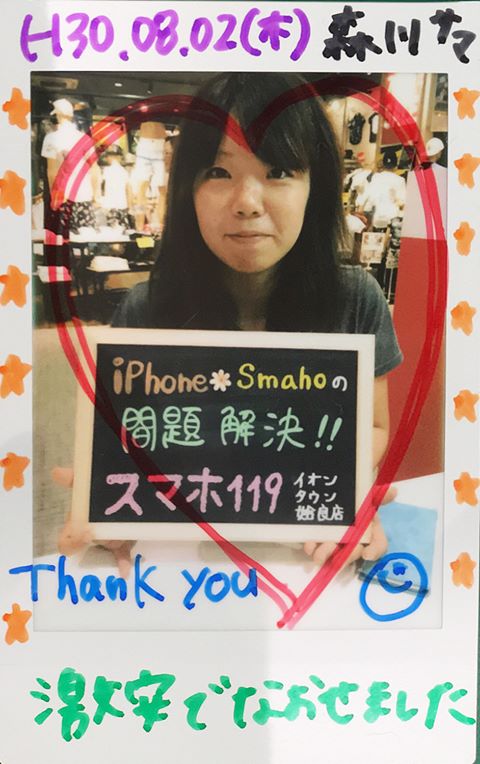 H30.08.02(木) 森川サマ
iPhone*Smahoの
問題解決!!
スマホ119
イオン
タウン
姶良店
Thank you
激安でなおせました